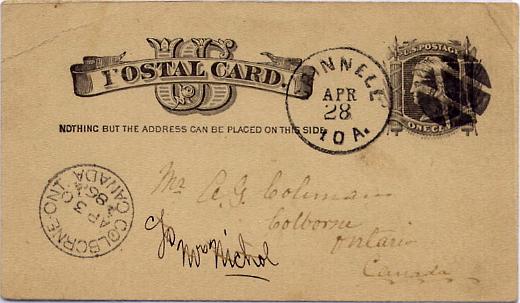 US
POSTAL CARD.
NOTHING BUT THE ADDRESS CAN BE PLACED ON THIS SIDE
NNELL
APR
28
IOA.
U.S. POSTAGE
ONE CE
COLBORNE-ONT
AP 3 0
86
CANADA
Mr A. G. Coleman
Colborne
Ontario
Canada
Nichol